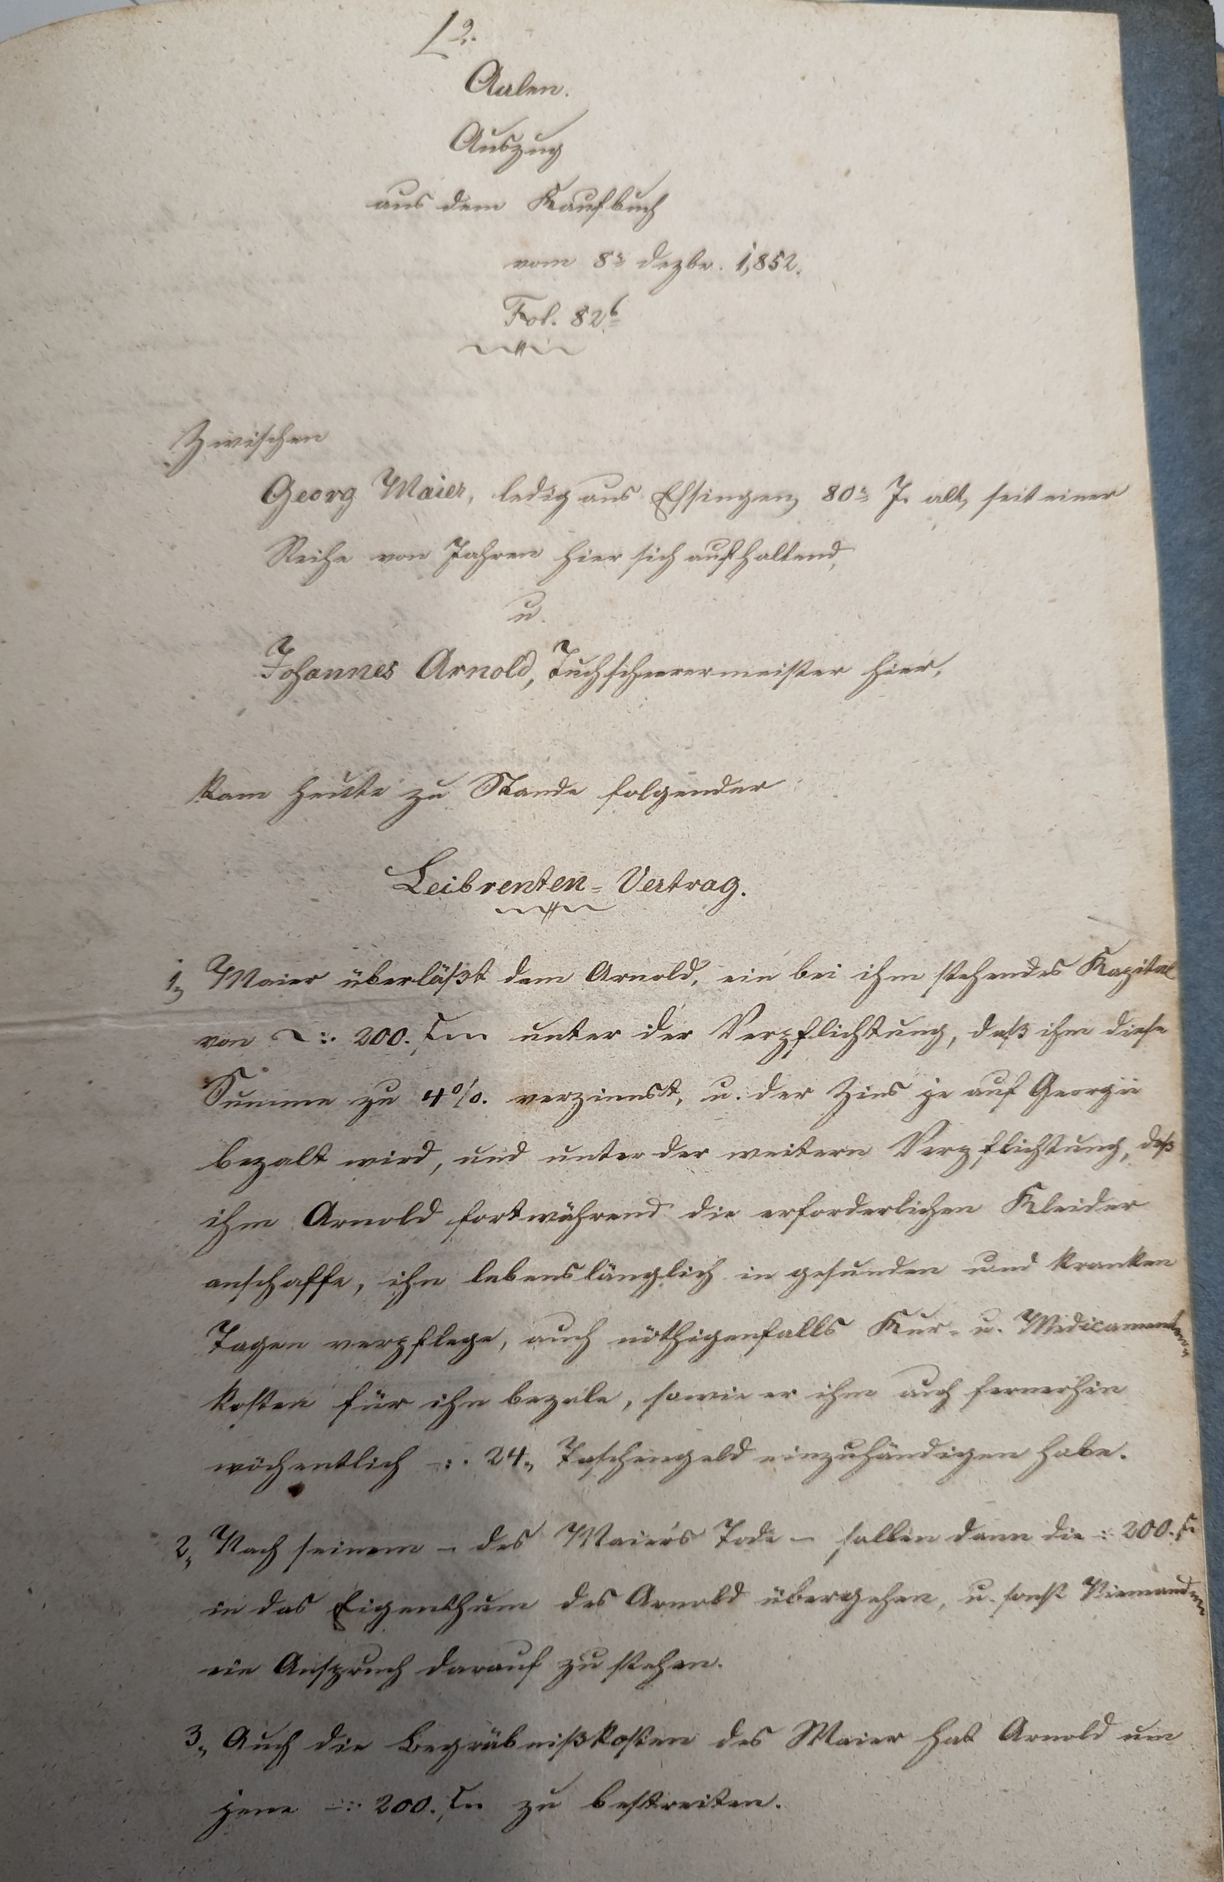 2.
Aalen.
Auszug
aus dem Kaufbuch
vom 8n Dezbr. 1,852.
Fol. 82b
Zwischen
Georg Maier, ledig aus Essingen, 80n J. alt, seit einer
Reihe von Jahren hier sich aufhaltend,
u.
Johannes Arnold, Tuchscheerermeister hier,
kam heute zu Stande folgender
Leibrenten-Vertrag.
1., Maier überläßt dem Arnold, ein bei ihm stehendes Kapital
von 200. f unter der Verpflichtung, daß ihm diese
Summe zu 4%. verzinnst, u. der Zins je auf Georgii
bezalt wird, und unter der weitern Verpflichtung, daß
ihm Arnold fortwährend die erforderlichen Kleider
anschaffe, ihn lebenslänglich in gesunden und kranken
Tagen verpflege, auch nöthigenfalls Kur- u. Medicamenten
kosten für ihn bezale, sowie er ihm auch fernerhin
wöchentlich 24., Taschengeld einzuhändigen habe.
2., Nach seinem - des Maier's Tode - sollen dann die 200. f
in das Eigenthum des Arnold übergehen, u. sonst Niemanden
ein Anspruch darauf zu stehen.
3., Auch die Begräbnißkosten des Maier hat Arnold um
jene 200. f zu bestreiten.